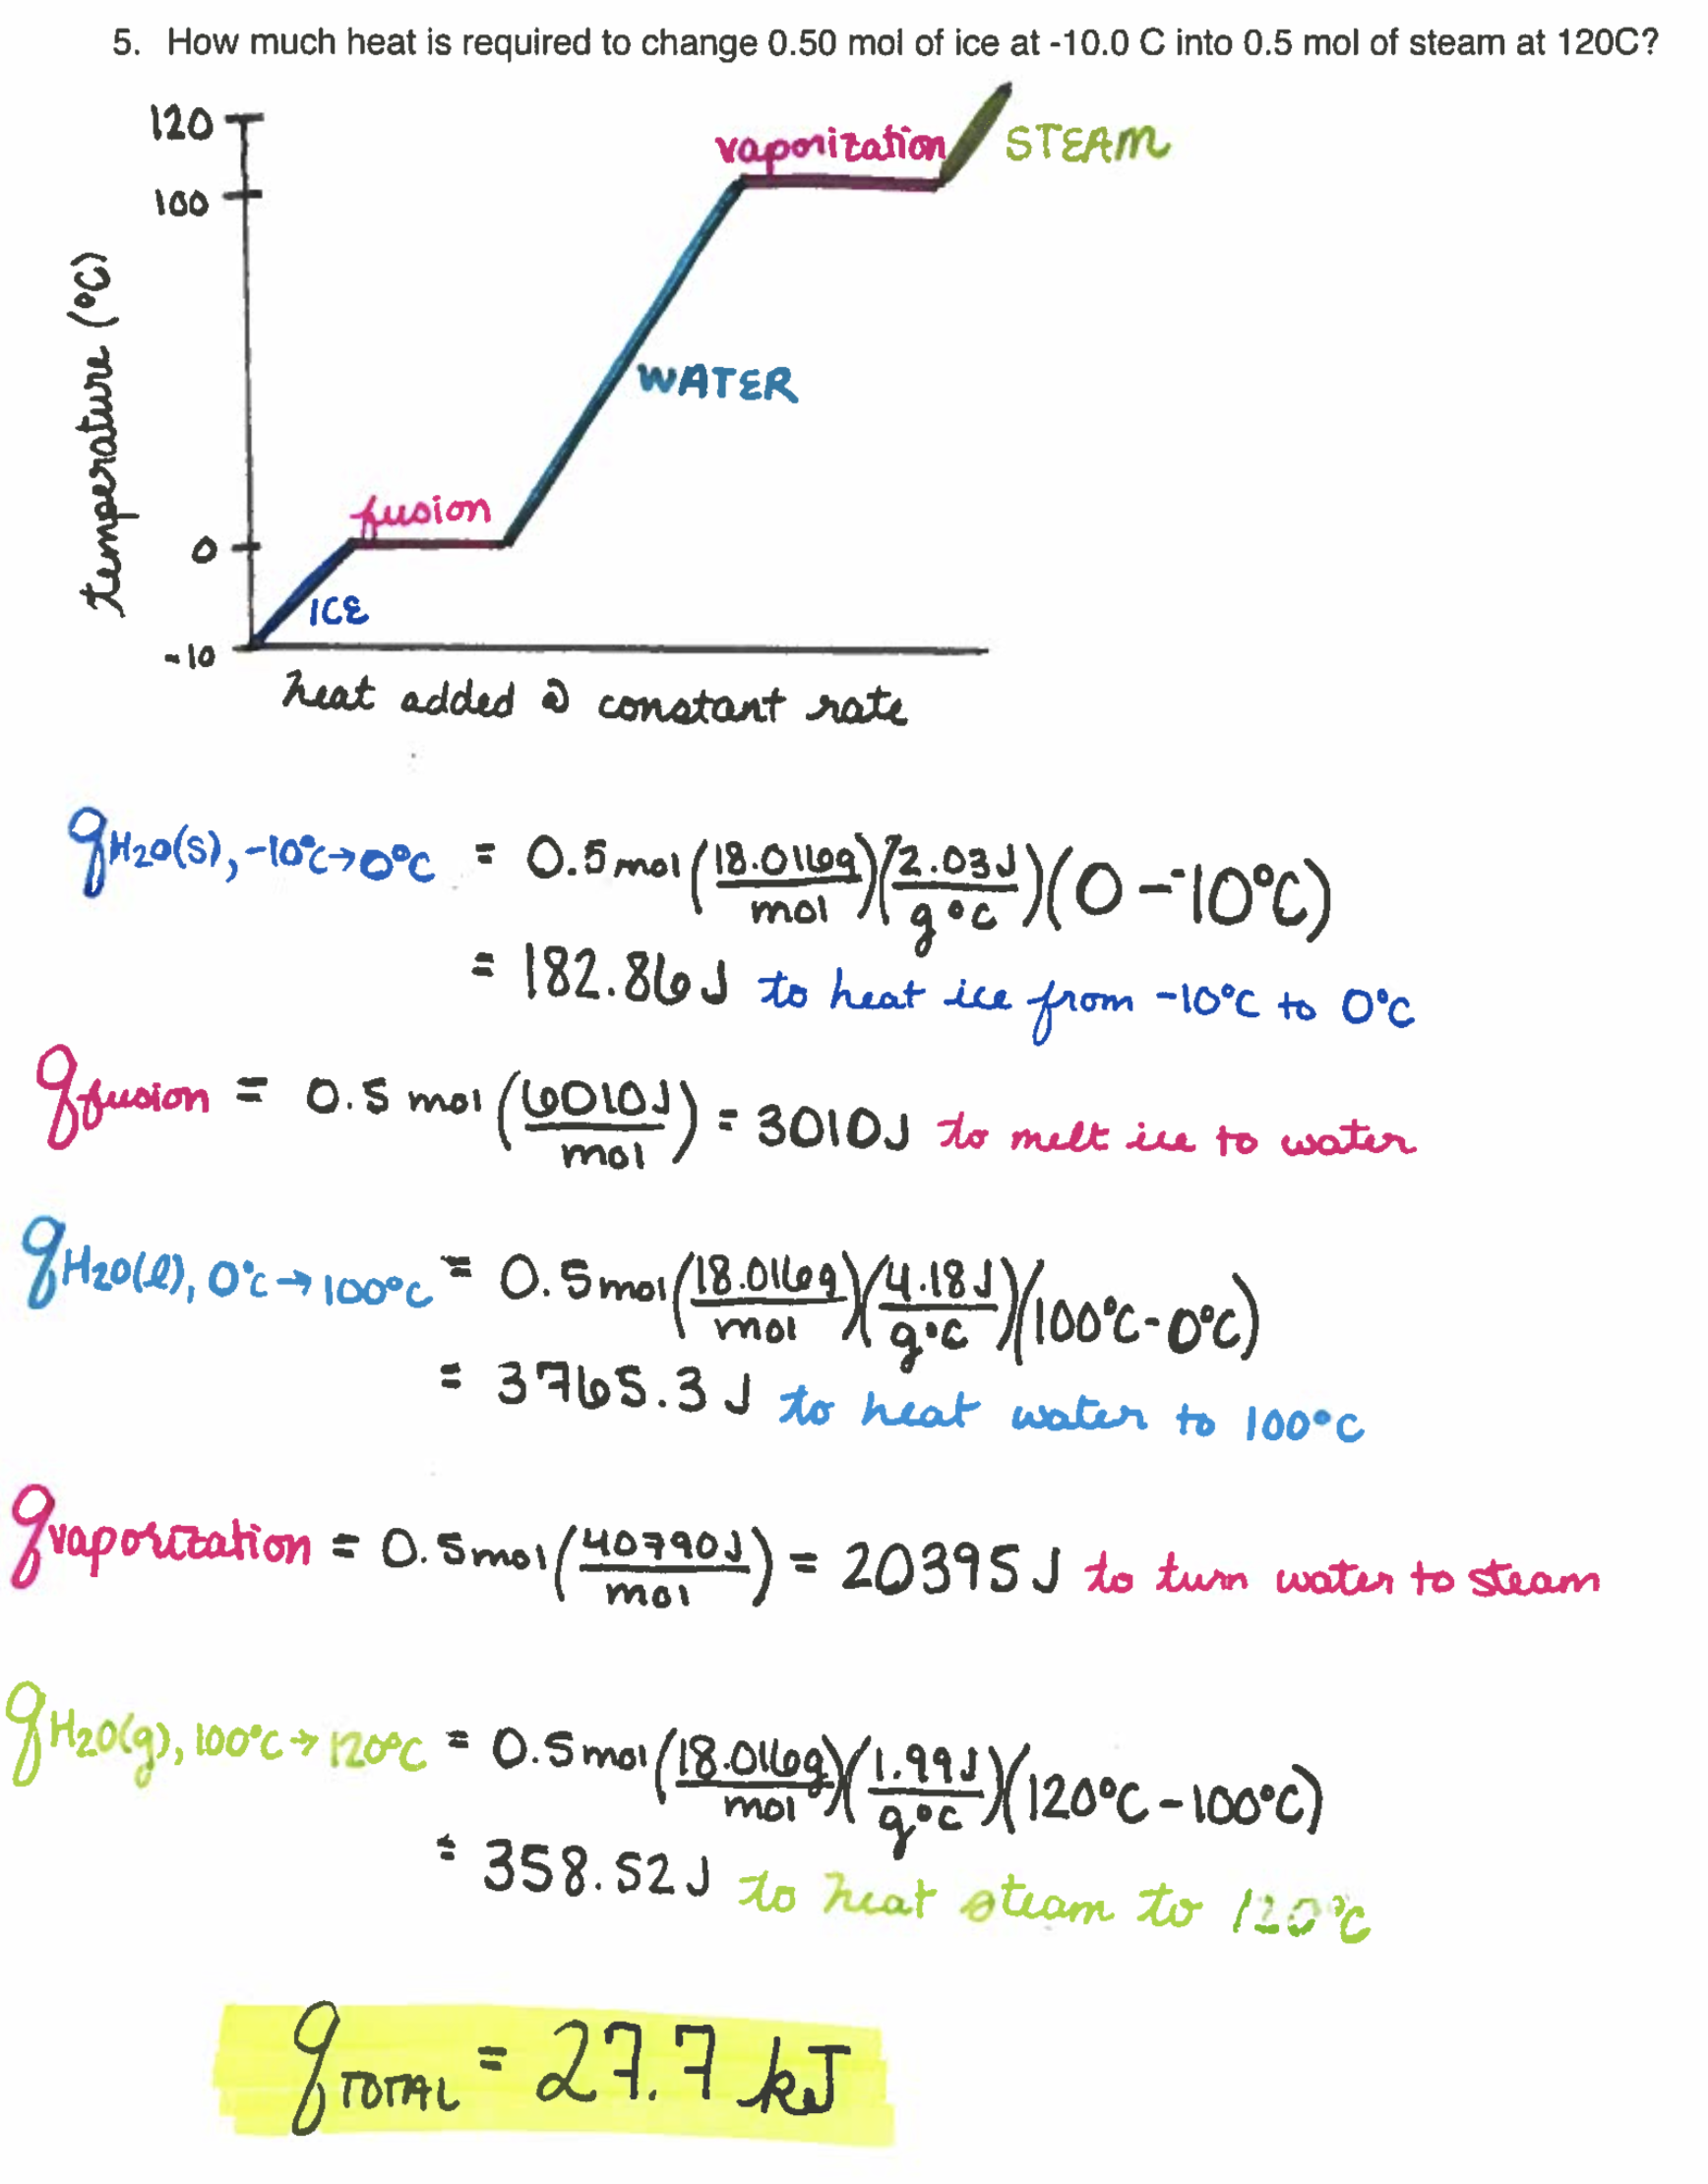 5. How much heat is required to change 0.50 mol of ice at -10.0 C into 0.5 mol of steam at 120C?
120
100
0
-10
temperature (°C)
vaporization
STEAM
WATER
fusion
ICE
heat added @ constant rate
qH₂O(s), -10°C→0°C = 0.5 mol (18.016g/mol)(2.03J/g°C)(0 - -10°C)
= 182.86 J to heat ice from -10°C to 0°C
qfusion = 0.5 mol (6010J/mol) = 3010J to melt ice to water
qH₂O(l), 0°C→100°C = 0.5 mol (18.016g/mol)(4.18J/g°C)(100°C-0°C)
= 3765.3 J to heat water to 100°C
qvaporization = 0.5 mol (40790J/mol) = 20395 J to turn water to steam
qH₂O(g), 100°C→120°C = 0.5 mol (18.016g/mol)(1.99J/g°C)(120°C-100°C)
= 358.52 J to heat steam to 120°C
qTOTAL = 27.7 kJ